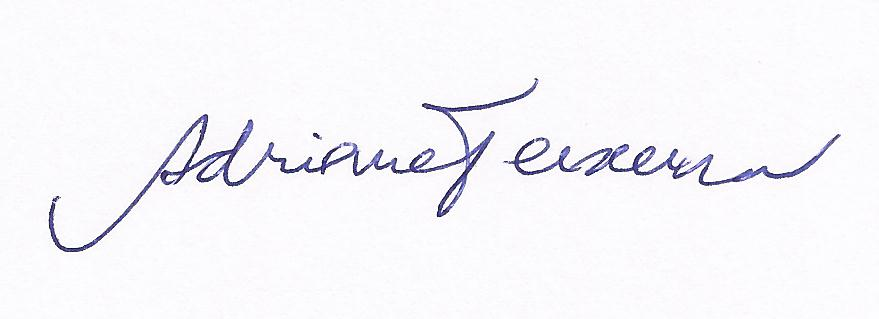 Adriane Teixeira